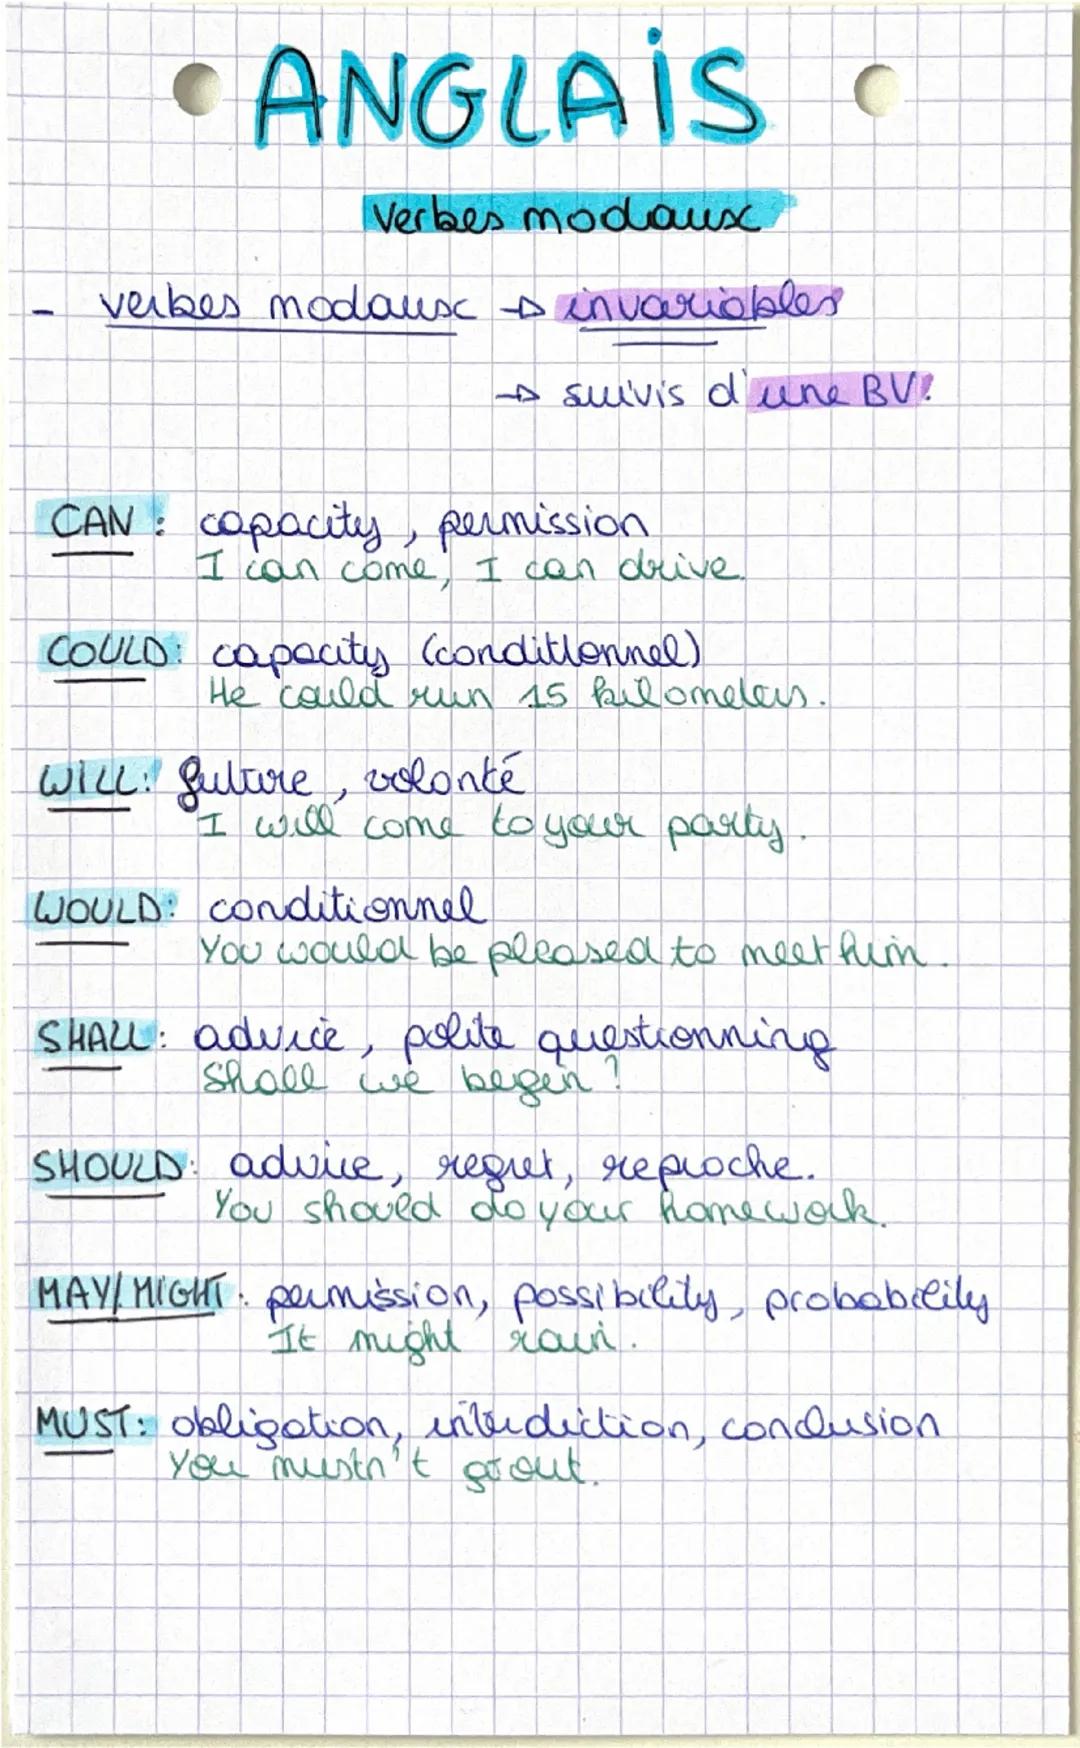 ANGLAIS
verbes modaux
- verbes modaux → invariables
→ suivis d'une BV!
CAN : capacity, permission
I can come, I can drive.
COULD: capacity (conditionnel)
He could run 15 kilometers.
WILL: future, volonté
I will come to your party.
WOULD: conditionnel
You would be pleased to meet him.
SHALL: advice, polite questionning
Shall we begin ?
SHOULD: advice, regret, reproche.
You should do your homework.
MAY/MIGHT: permission, possibility, probability
It might rain.
MUST: obligation, interdiction, conclusion
You mustn't go out.